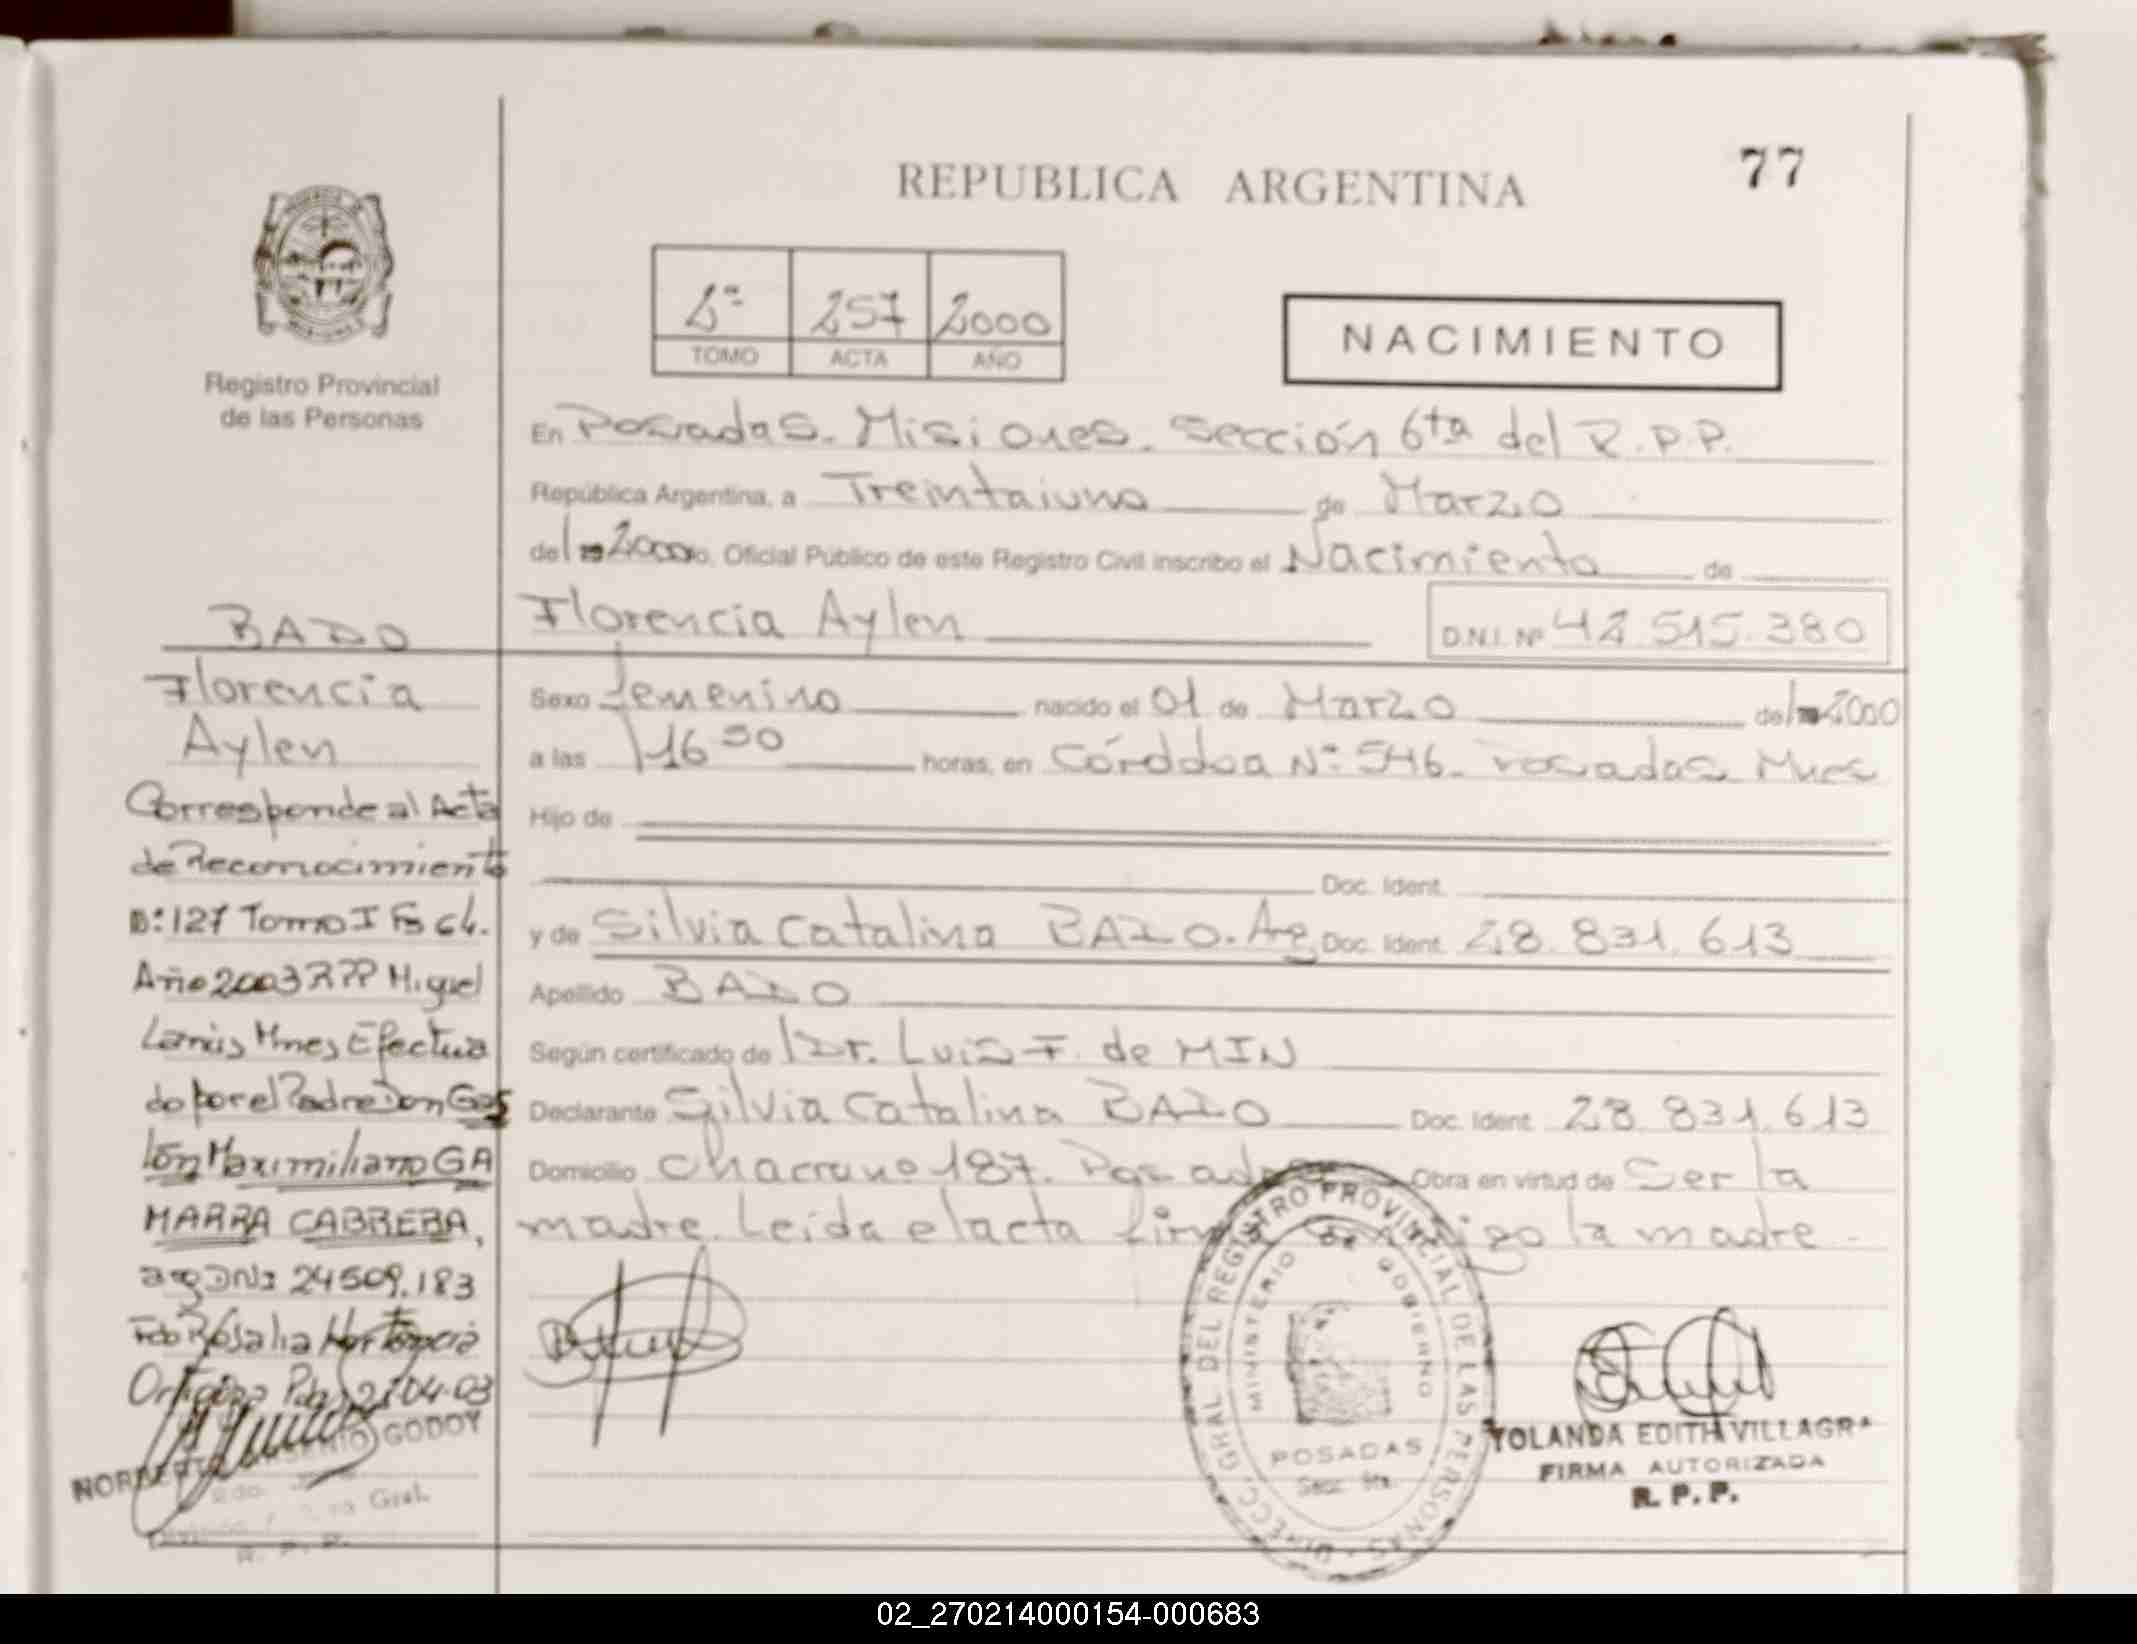 77
REPUBLICA ARGENTINA
2º 257 2000
TOMO ACTA AÑO
NACIMIENTO
Registro Provincial
de las Personas
En Posadas. Misiones. Sección 6ta del R.P.P.
República Argentina, a Treintaiuno de Marzo
del 2000 Oficial Público de este Registro Civil inscribo el Nacimiento de
Florencia Aylen D.N.I. Nº 42.515.380
Sexo femenino nacido el 01 de Marzo de 2000
a las 16 horas, en Córdoba Nº 546. Posadas Mnes
Hijo de
Doc. Ident.
y de Silvia Catalina BADO. Arg. Doc. Ident. 28.831.613
Apellido BADO
Según certificado de Dr. Luis F. de MIN
Declarante Silvia Catalina BADO Doc. Ident. 28.831.613
Domicilio Chacra nº 187. Posadas Obra en virtud de Ser la
madre. Leída el acta firma conmigo la madre.
BADO
Florencia
Aylen
Corresponde al Acta
de Reconocimiento
Nº: 127 Tomo I Fs 64.
Año 2003 RPP Miguel
Lanús Mnes Efectua
do por el Padre Don Gas
tón Maximiliano GA
MARRA CABRERA,
arg DNI 24509.183
Fdo Rosalia Hortencia
04-03
GODOY
Gral.
R. P. P.
DIRECC. GRAL DEL REGISTRO PROVINCIAL DE LAS PERSONAS
MINISTERIO DE GOBIERNO
POSADAS
Secc.
YOLANDA EDITH VILLAGRA
FIRMA AUTORIZADA
R. P. P.
02_270214000154-000683